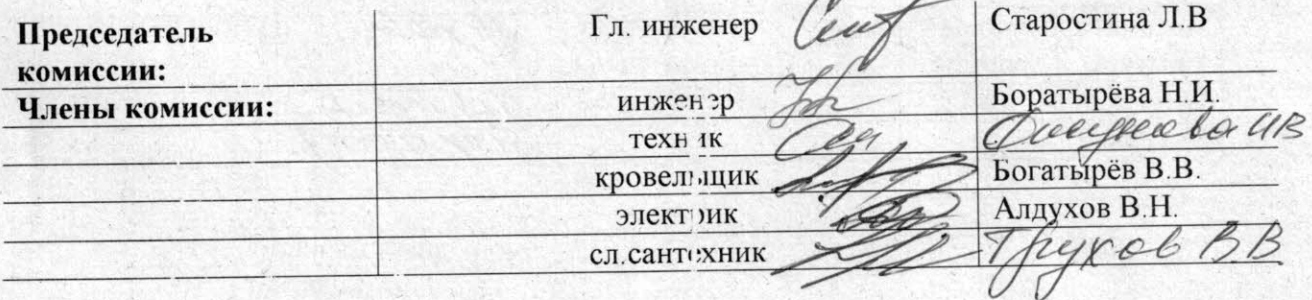 Председатель комиссии: Гл. инженер Старостина Л.В
Члены комиссии: инженер Боратырёва Н.И.
техник ИВ
кровельщик Богатырёв В.В.
электрик Алдухов В.Н.
сл.сантехник Трухов В.В